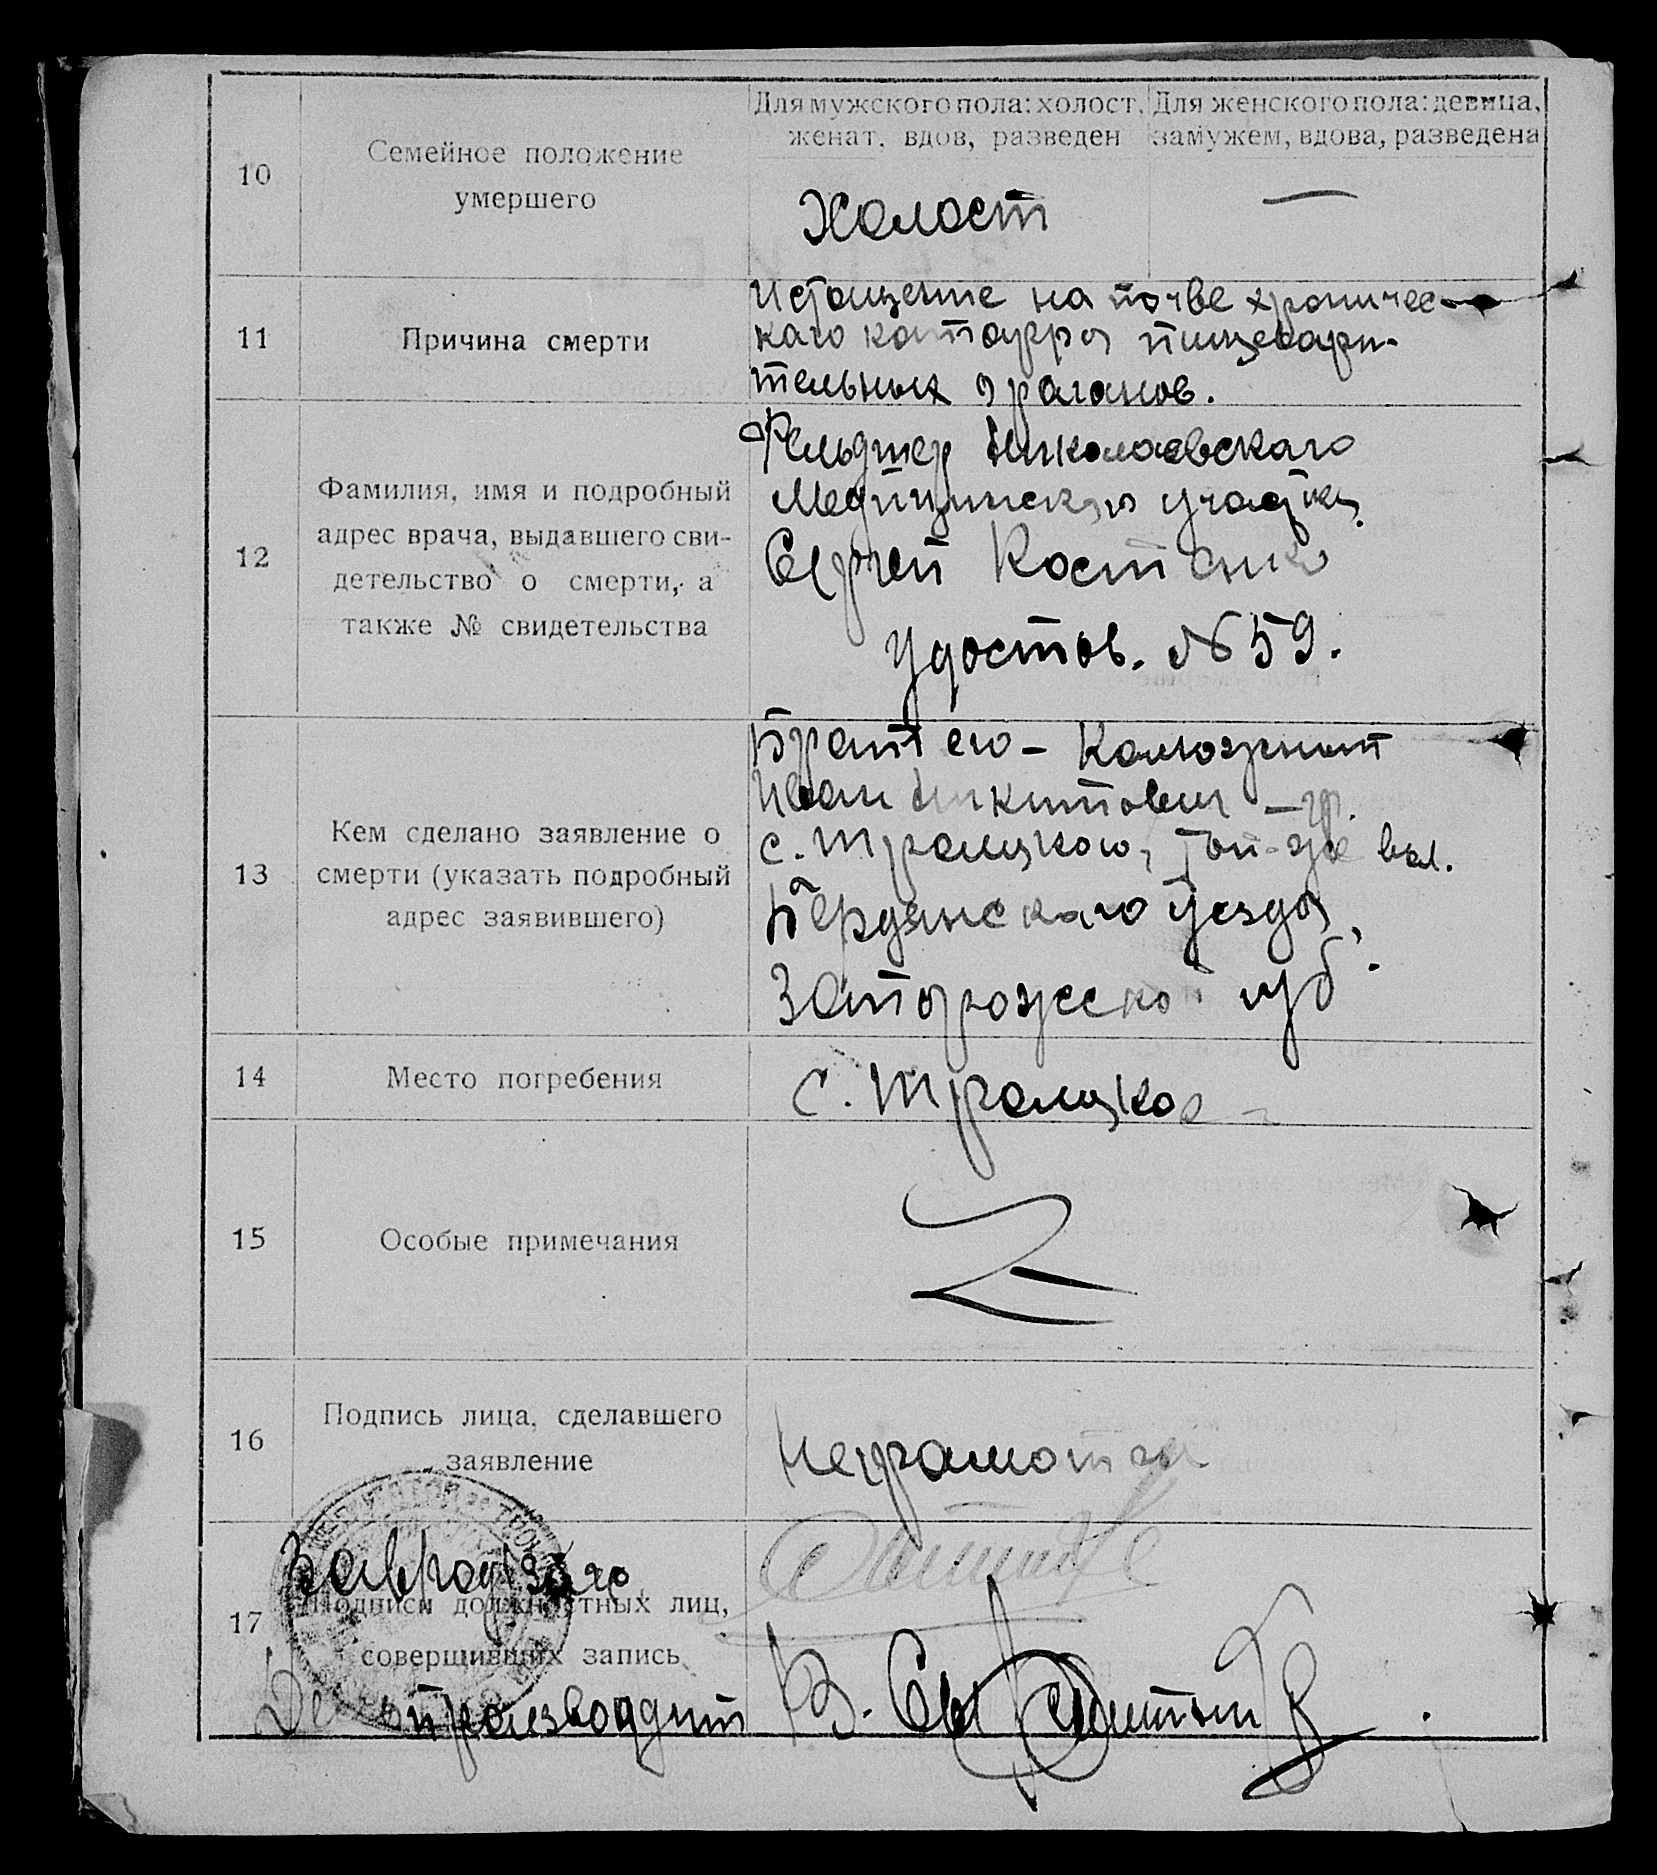 Для мужского пола: холост, Для женского пола: девица,
женат, вдов, разведен замужем, вдова, разведена
10 Семейное положение
умершего
Холост —
11 Причина смерти
Истощение на почве хроничес-
каго катарра пищевари-
тельных органов.
12 Фамилия, имя и подробный
адрес врача, выдавшего сви-
детельство о смерти, а
также № свидетельства
Фельдшер Николаевскаго
Медицинскаго участка
Сергей Костенко
Удостов. № 59.
13 Кем сделано заявление о
смерти (указать подробный
адрес заявившего)
Брат его – Калюжный
Иван Никитович – гр.
с. Троицкого, той-же вол.
Бердянскаго Уезда
Запорожской губ.
14 Место погребения
с. Троицкое
15 Особые примечания
16 Подпись лица, сделавшего
заявление
Неграмотен
17 Подписи должностных лиц,
совершивших запись
Делопроизводит
В.